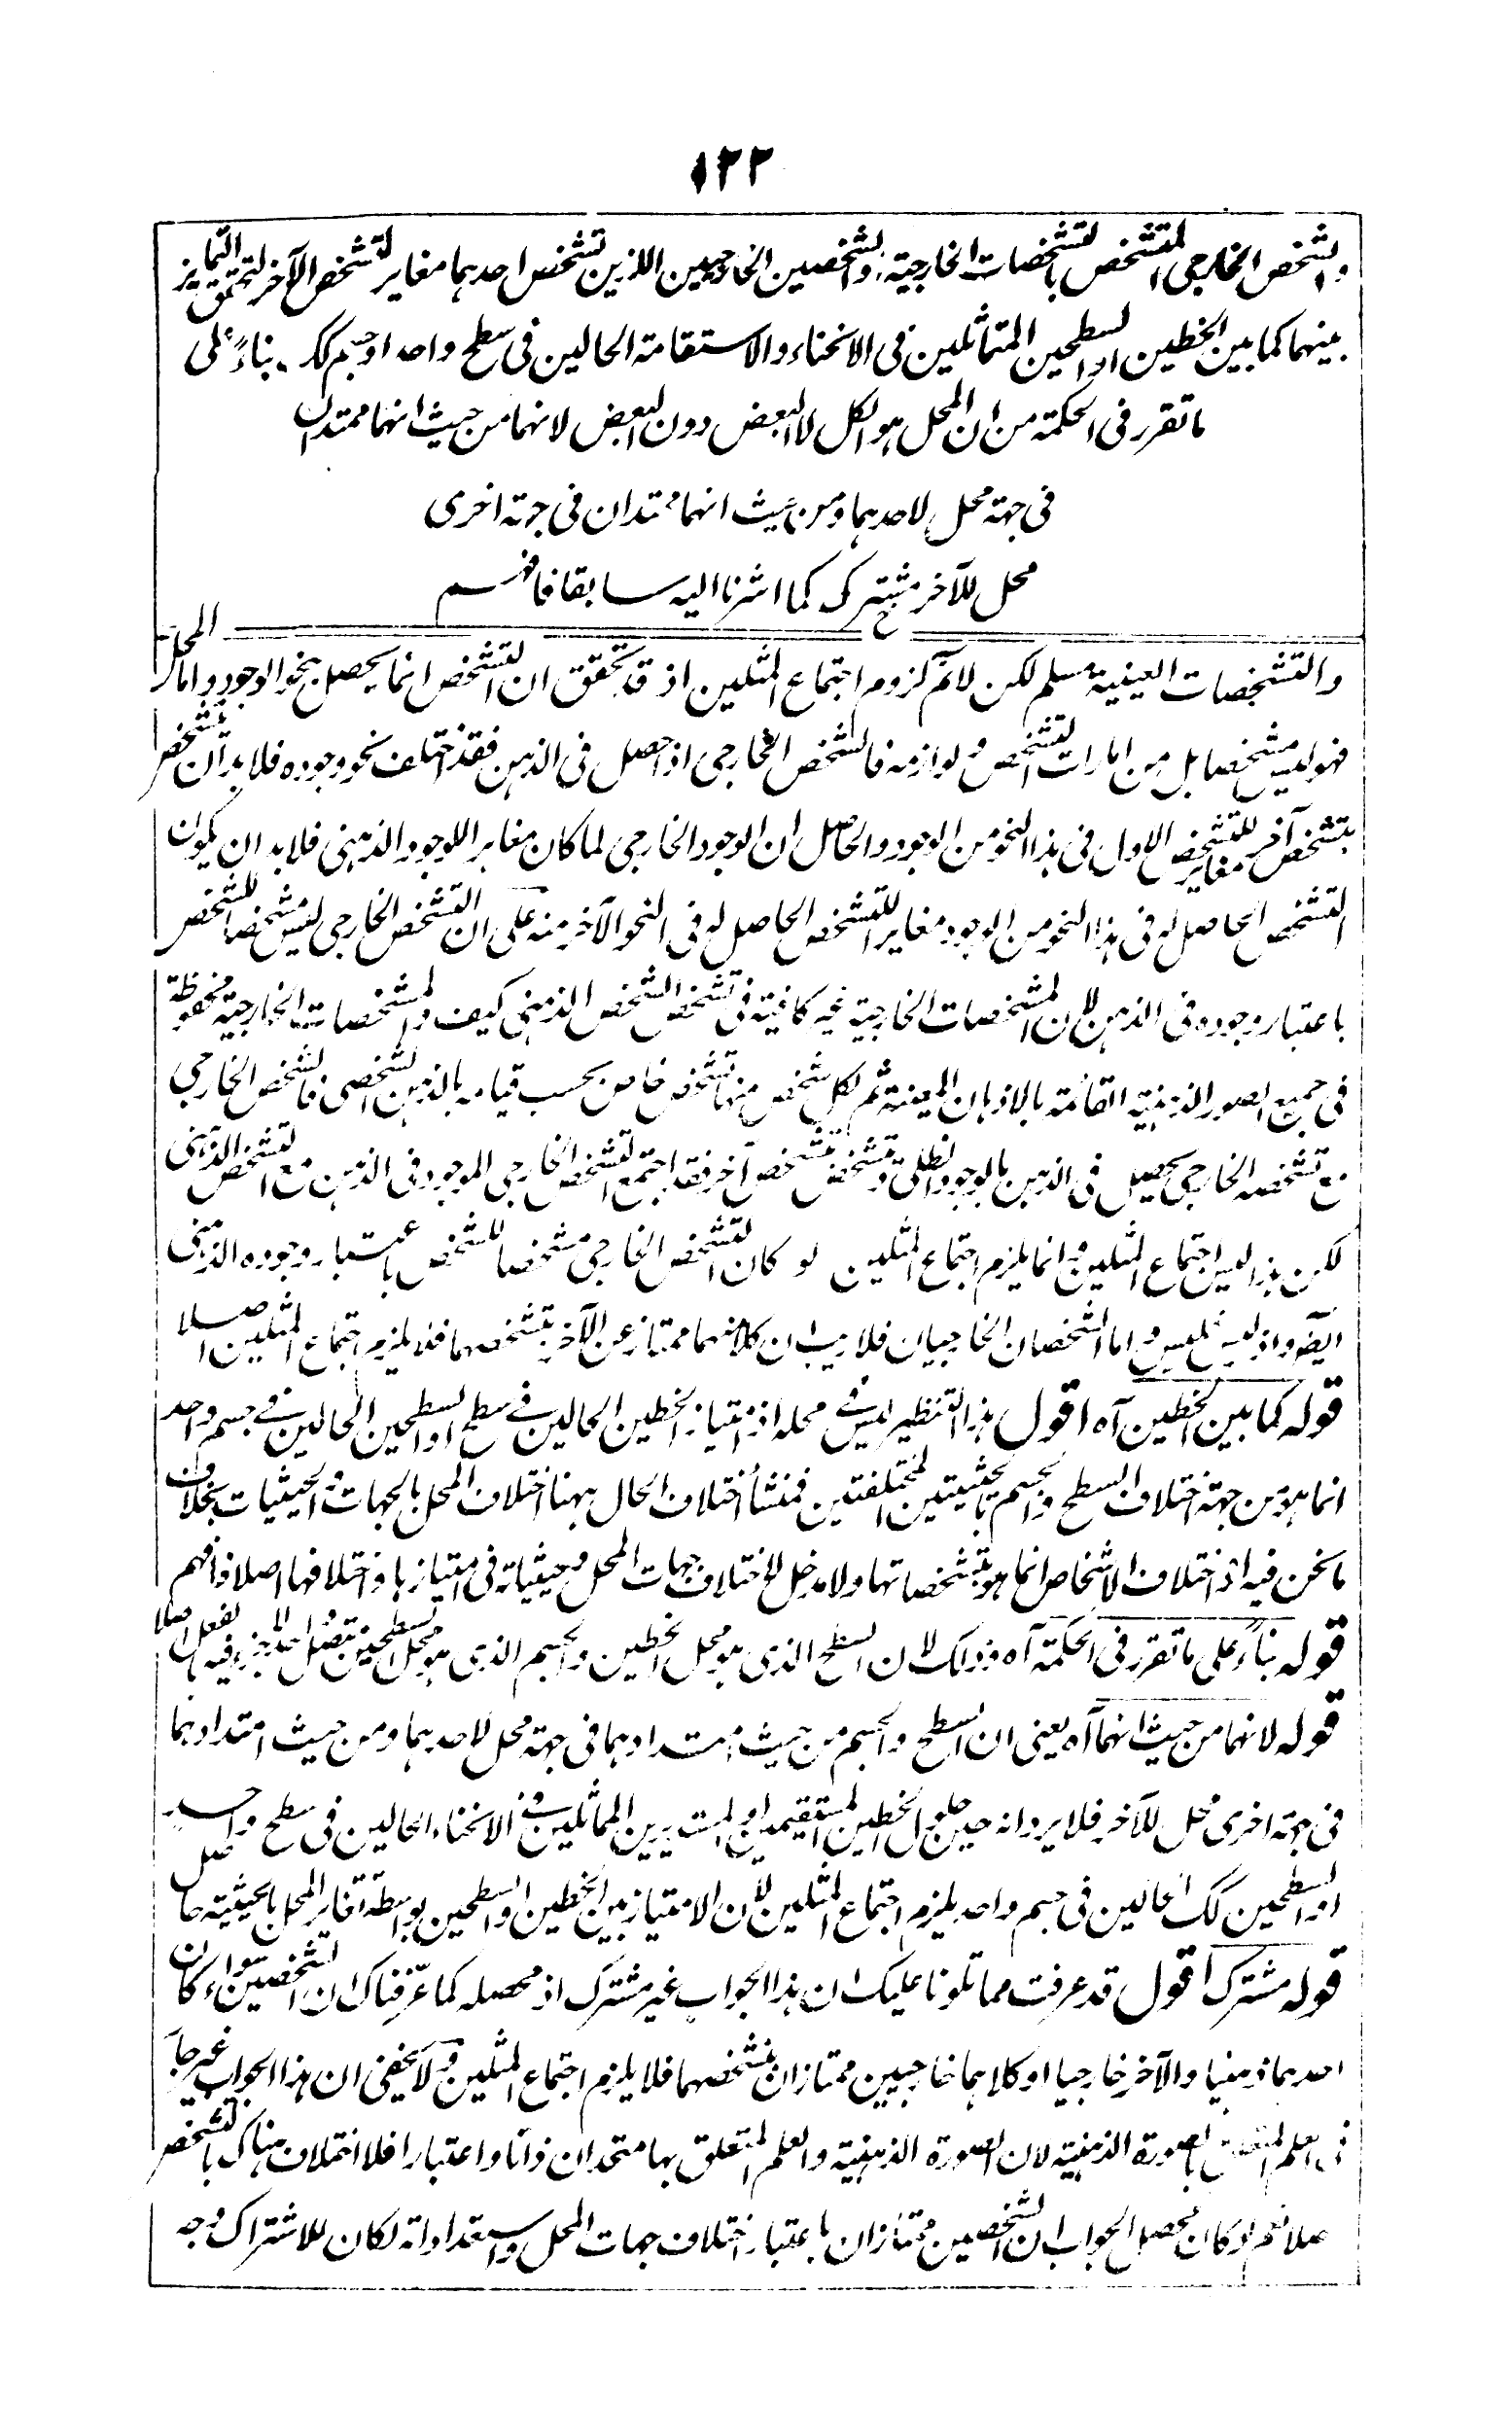 ١٢٢
والشخص الخارجي المتشخص بالتشخصات الخارجية والشخصين الخارجيين اللذين تشخص احدهما مغاير لتشخص الآخر لتحقق التمايز
بينهما كما بين الخطين او السطحين المتماثلين في الانحناء والاستقامة الحالين في سطح واحد او جسم كك بناءً على
ما تقرر في الحكمة من ان المحل هو الكل لا البعض دون البعض لانهما من حيث انهما ممتدان
في جهة محل لاحدهما ومن حيث انهما ممتدان في جهة اخرى
محل للآخر مشترك كما اشرنا اليه سابقا فافهم
والتشخصات العينية مسلم لكن لانم لزوم اجتماع المثلين اذ قد تحقق ان التشخص انما يحصل بنحو الوجود واما المحل
فهو ليس مشخصا بل من امارات التشخص ولوازمه فالشخص الخارجي اذا حصل في الذهن فقد اختلف نحو وجوده فلا بد ان يتشخص
بتشخص آخر مغاير للتشخص الاول في هذا النحو من الوجود والحاصل ان الوجود الخارجي لما كان مغايرا للوجود الذهني فلا بد ان يكون
التشخص الحاصل له في هذا النحو من الوجود مغاير للتشخص الحاصل له في النحو الآخر منه على ان التشخص الخارجي ليس مشخصا للشخص
باعتبار وجوده في الذهن لان المشخصات الخارجية غير كافية في تشخص الشخص الذهني كيف والمشخصات الخارجية محفوظة
في جميع الصور الذهنية القائمة بالاذهان المعينة ثم لكل شخص منها تشخص خاص بحسب قيامه بالذهن الشخصي فالشخص الخارجي
مع تشخصه الخارجي يحصل في الذهن بالوجود الظلي ويتشخص بتشخص آخر فقد اجتمع التشخص الخارجي الموجود في الذهن مع التشخص الذهني
لكن هذا ليس اجتماع المثلين وانما يلزم اجتماع المثلين لو كان التشخص الخارجي مشخصا للشخص باعتبار وجوده الذهني
ايضا واذ ليس فليس واما الشخصان الخارجيان فلا ريب ان كلا منهما ممتاز عن الآخر بتشخصهما فلا يلزم اجتماع المثلين اصلا
قوله كما بين الخطين آه اقول هذا التنظير ليس في محله اذ امتياز الخطين الحالين في سطح او السطحين الحالين في جسم واحد
انما هو من جهة اختلاف السطح والجسم بالحيثيتين المختلفتين فمنشأ اختلاف الحال ههنا اختلاف المحل بالجهات والحيثيات بخلاف
ما نحن فيه اذ اختلاف الاشخاص انما هو بتشخصاتها ولا مدخل لاختلاف جهات المحل وحيثياته في امتيازها واختلافها اصلا فافهم
قوله بناءً على ما تقرر في الحكمة آه وذلك لان السطح الذي هو محل الخطين والجسم الذي هو محل السطحين متصل لا جزء فيه بالفعل اصلا
قوله لانهما من حيث انهما آه يعني ان السطح والجسم من حيث امتدادهما في جهة محل لاحدهما ومن حيث امتدادهما
في جهة اخرى محل للآخر فلا يرد انه حين حلول الخطين المستقيمين او المستديرين المماثلين في الانحناء الحالين في سطح واحد
او السطحين كك الحالين في جسم واحد يلزم اجتماع المثلين لان الامتياز بين الخطين والسطحين بواسطة تغاير المحل بالحيثية حاصل
قوله مشترك اقول قد عرفت مما تلونا عليك ان هذا الجواب غير مشترك اذ محصله كما عرفناك ان الشخصين سواء كان
احدهما ذهنيا والآخر خارجيا او كلاهما خارجيين ممتازان بتشخصهما فلا يلزم اجتماع المثلين ولا يخفى ان هذا الجواب غير جار
في العلم المتعلق بالصورة الذهنية لان الصورة الذهنية والعلم المتعلق بها متحدان ذاتا واعتبارا فلا اختلاف هناك بالتشخص
اصلا نعم لو كان محصل الجواب ان الشخصين ممتازان باعتبار اختلاف جهات المحل واستعداداته لكان للاشتراك وجه